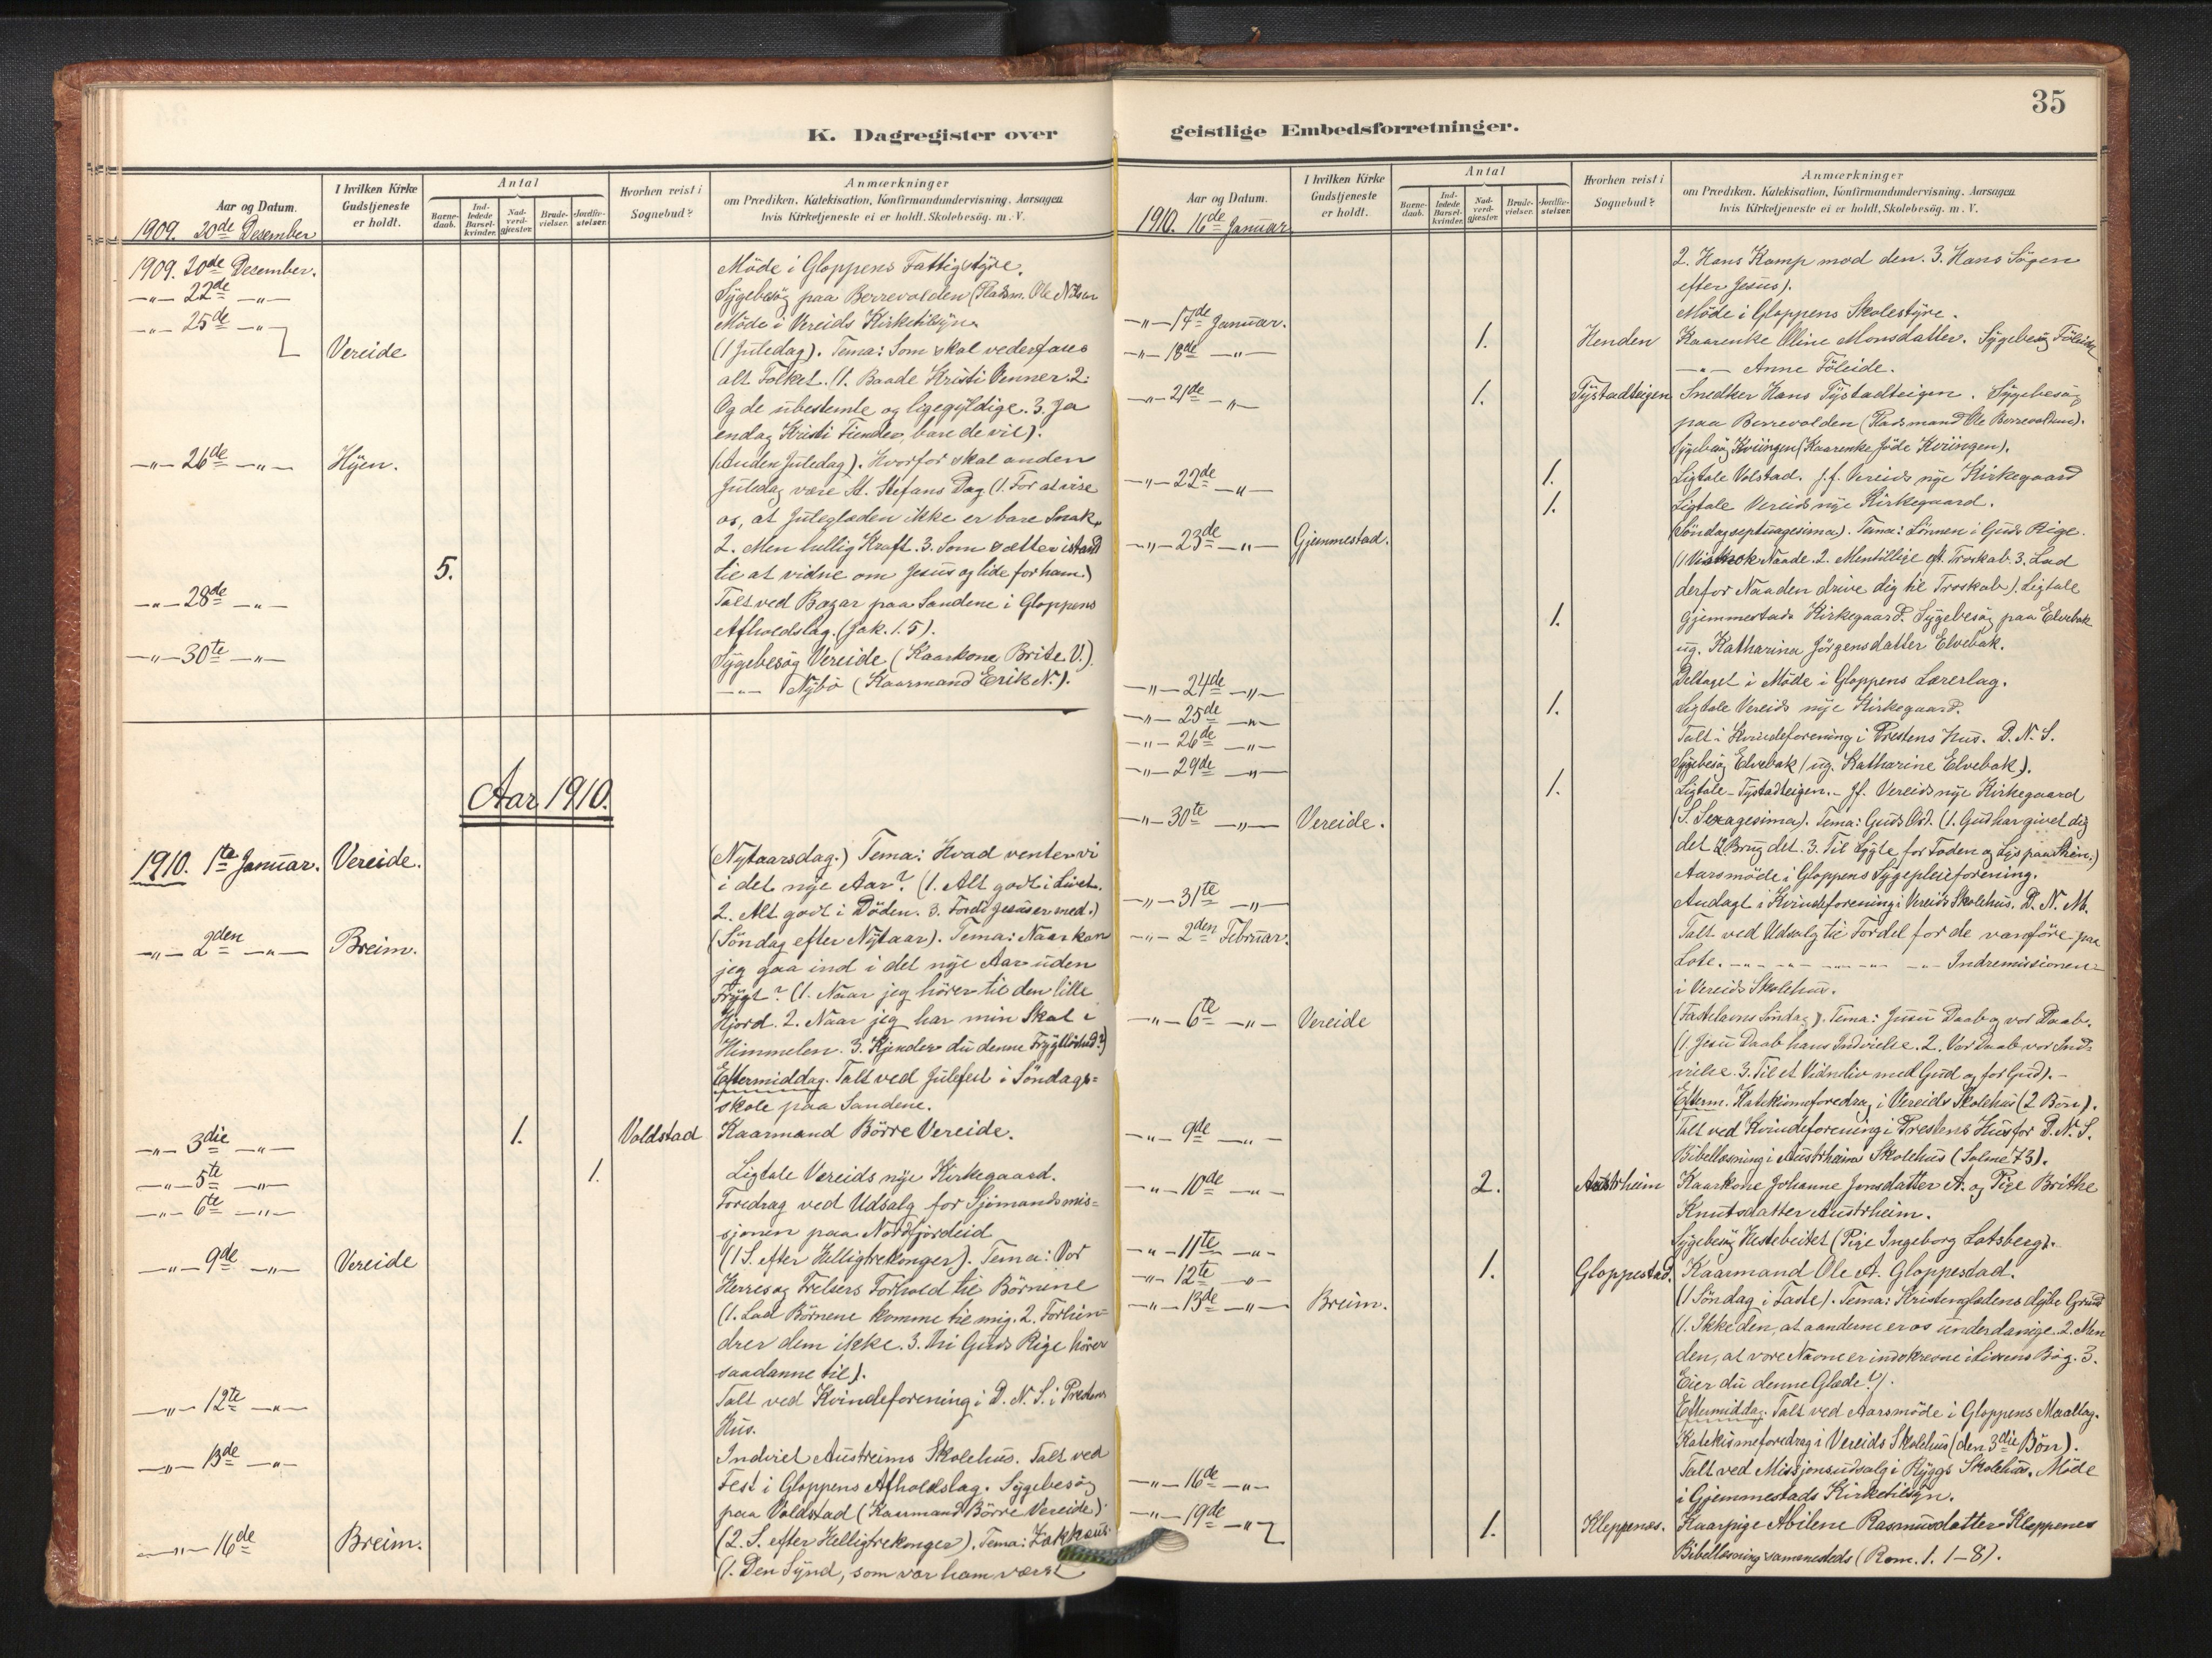 K. Dagregister over
Aar og Datum.
I hvilken Kirke Gudstjeneste er holdt.
Antal
Barne-daab.
Ind-ledede Barsel-kvinder.
Nad-verd-gjæster.
Brude-vielser.
Jordfæ-stelser.
Hvorhen reist i Sognebud?
Anmærkninger
om Prædiken, Katekisation, Konfirmandundervisning, Aarsagen
hvis Kirketjeneste ei er holdt, Skolebesøg. m. V.
1909. 20de Desember
1909. 20de Desember. Möde i Gloppens Fattigstyre.
-"- 22de -"- Sygebesøg paa Berrevolden (Pladsm. Ole Nilsen
-"- 25de -"- Möde i Vereids Kirketilsyn.
Vereide (1 Juledag). Tema: Som skal vederfares
alt Folket. (1. Baade Kristi Venner. 2:
Og de ubestemte og ligegyldige. 3. Ja
endog Kristi Fiender, bare de vil).
-"- 26de -"- Hyen. (Anden Juledag). Hvorfor skal anden
Juledag være St. Stefans Dag (1. For at vise
os, at Juleglæden ikke er bare Snak.
2. Men hellig Kraft. 3. Som sætter istand
5. til at vidne om Jesus og lide for ham.)
-"- 28de -"- Talt ved Bazar paa Sandene i Gloppens
Afholdslag. (Jak. 1. 5).
-"- 30te -"- Sygebesøg Vereide (Kaarkone Brite V.).
-"- Nybö (Kaarmand Erik N.).
Aar 1910.
1910. 1te Januar. Vereide. (Nytaarsdag.) Tema: Hvad venter vi
i det nye Aar? (1. Alt godt i Livet.
2. Alt godt i Döden. 3. Fordi Jesus er med.)
-"- 2den -"- Breim. (Söndag efter Nytaar). Tema: Naar kan
jeg gaa ind i det nye Aar uden
Frygt? (1. Naar jeg hører til den lille
Hjord. 2. Naar jeg har min Skat i
Himmelen. 3. Kjender du denne Frygtløshed?)
Eftermiddag. Talt ved Julefest i Söndags=
skole paa Sandene.
-"- 3die -"- 1. Voldstad Kaarmand Börre Vereide.
-"- 5te -"- 1. Ligtale Vereids nye Kirkegaard.
-"- 6te -"- Foredrag ved Udsalg for Sjömandsmis=
sjonen paa Nordfjordeid
-"- 9de -"- Vereide (1 S. efter Helligtrekonger). Tema: Vor
Herres og Frelsers Forhold til Börnene
(1. Lad Börnene komme til mig. 2. Forhin=
drer dem ikke. 3. Thi Guds Rige hörer
saadanne til).
-"- 12te -"- Talt ved Kvindeforening i D. N. S. i Prestens
Hus.
-"- 13de -"- Indviet Austreims Skolehus. Talt ved
Fest i Gloppens Afholdslag. Sygebesög
paa Voldstad (Kaarmand Börre Vereide).
-"- 16de Breim. (2. S. efter Helligtrekonger). Tema: Zakkæus.
(1. Den Synd, som var ham værst
35
geistlige Embedsforretninger.
Aar og Datum.
I hvilken Kirke Gudstjeneste er holdt.
Antal
Barne-daab.
Ind-ledede Barsel-kvinder.
Nad-verd-gjæster.
Brude-vielser.
Jordfæ-stelser.
Hvorhen reist i Sognebud?
Anmærkninger
om Prædiken, Katekisation, Konfirmandundervisning, Aarsagen
hvis Kirketjeneste ei er holdt, Skolebesøg. m. V.
1910. 16de Januar
2. Hans Kamp mod den. 3. Hans Sögen
efter Jesus).
-"- 17de Januar. Möde i Gloppens Skolestyre.
-"- 18de -"- 1. Henden Kaarenke Oline Monsdatter. Sygebesög Föleide
-"- Anne Föleide.
-"- 21de -"- 1. Tystadteigen Snedker Hans Tystadteigen. Sygebesög
paa Berrevolden (Pladsmand Ole Berrevolden).
Sygebesög Kvingen (Kaarenke Jöde Kviingen).
-"- 22de -"- 1. Ligtale Volstad. J.f. Vereids nye Kirkegaard
1. Ligtale Vereids nye Kirkegaard.
-"- 23de -"- Gjemmestad. (Söndag septuagesima). Tema: Lönnen i Guds Rige.
Naade. 2. Men tillige af Troskab. 3. Lad
derfor Naaden drive dig til Troskab). Ligtale
1. Gjemmestads Kirkegaard. Sygebesög paa Elvebak
ug. Katharina Jörgensdatter Elvebak.
-"- 24de -"- Deltaget i Möde i Gloppens Lærerlag.
-"- 25de -"- 1. Ligtale Vereids nye Kirkegaard.
-"- 26de -"- Talt i Kvindeforening i Prestens Hus. D. N. S.
-"- 29de -"- Sygebesög Elvebak (ug. Katharine Elvebak).
1. Ligtale - Tystadteigen. - Jf. Vereids nye Kirkegaard
-"- 30te -"- Vereide. (S. Sexagesima). Tema: Guds Ord. (1. Gud har givet dig
det 2. Brug det. 3. Til Lygte for Foden og Lys paa Stien.)
Aarsmöde i Gloppens Sygepleieforening.
-"- 31te -"- Andagt i Kvindeforening i Vereids Skolehus. D. N. M.
-"- 2den Februar. Talt ved Udsalg til Fordel for de vanföre paa
Lote. -"- -"- -"- -"- -"- Indremissionen
i Vereids Skolehus.
-"- 6te -"- Vereide (Fastelavns Söndag). Tema: Jesu Daab og vor Daab.
(1. Jesu Daab hans Indvielse. 2. Vor Daab vor Ind=
vielse. 3. Til et Vidneliv med Gud og for Gud). -
Efterm. Katekismeforedrag i Vereids Skolehus (2 Bön).
-"- 9de -"- Talt ved Kvindeforening i Prestens Hus for D. N. S.
Bibellæsning i Austrheim Skolehus (Salme 73).
-"- 10de -"- 2. Austrheim Kaarkone Johanne Jonsdatter A. og Pige Brithe
Knutsdatter Austrheim.
-"- 11te -"- Sygebesög Hestebeitet (Pige Ingeborg Lotsberg).
-"- 12te -"- 1. Gloppestad. Kaarmand Ole A. Gloppestad.
-"- 13de -"- Breim. (1 Söndag i Faste). Tema: Kristenglædens dybe Grund
(1. Ikke den, at aanderne er os underdanige. 2. Men
den, at vore Navne er indskrevne i Livsens Bog. 3.
Eier du denne Glæde?).
Eftermiddag. Talt ved Aarsmöde i Gloppens Maallag.
Katekismeforedrag i Vereids Skolehus (den 3die Bön).
-"- 16de -"- Talt ved Missjonsudsalg i Ryggs Skolehus. Möde
i Gjemmestads Kirketilsyn.
-"- 19de -"- 1. Kleppenæs. Kaarpige Abilene Rasmusdatter Kleppenes
Bibellæsning sammesteds (Rom. 1. 1-8).